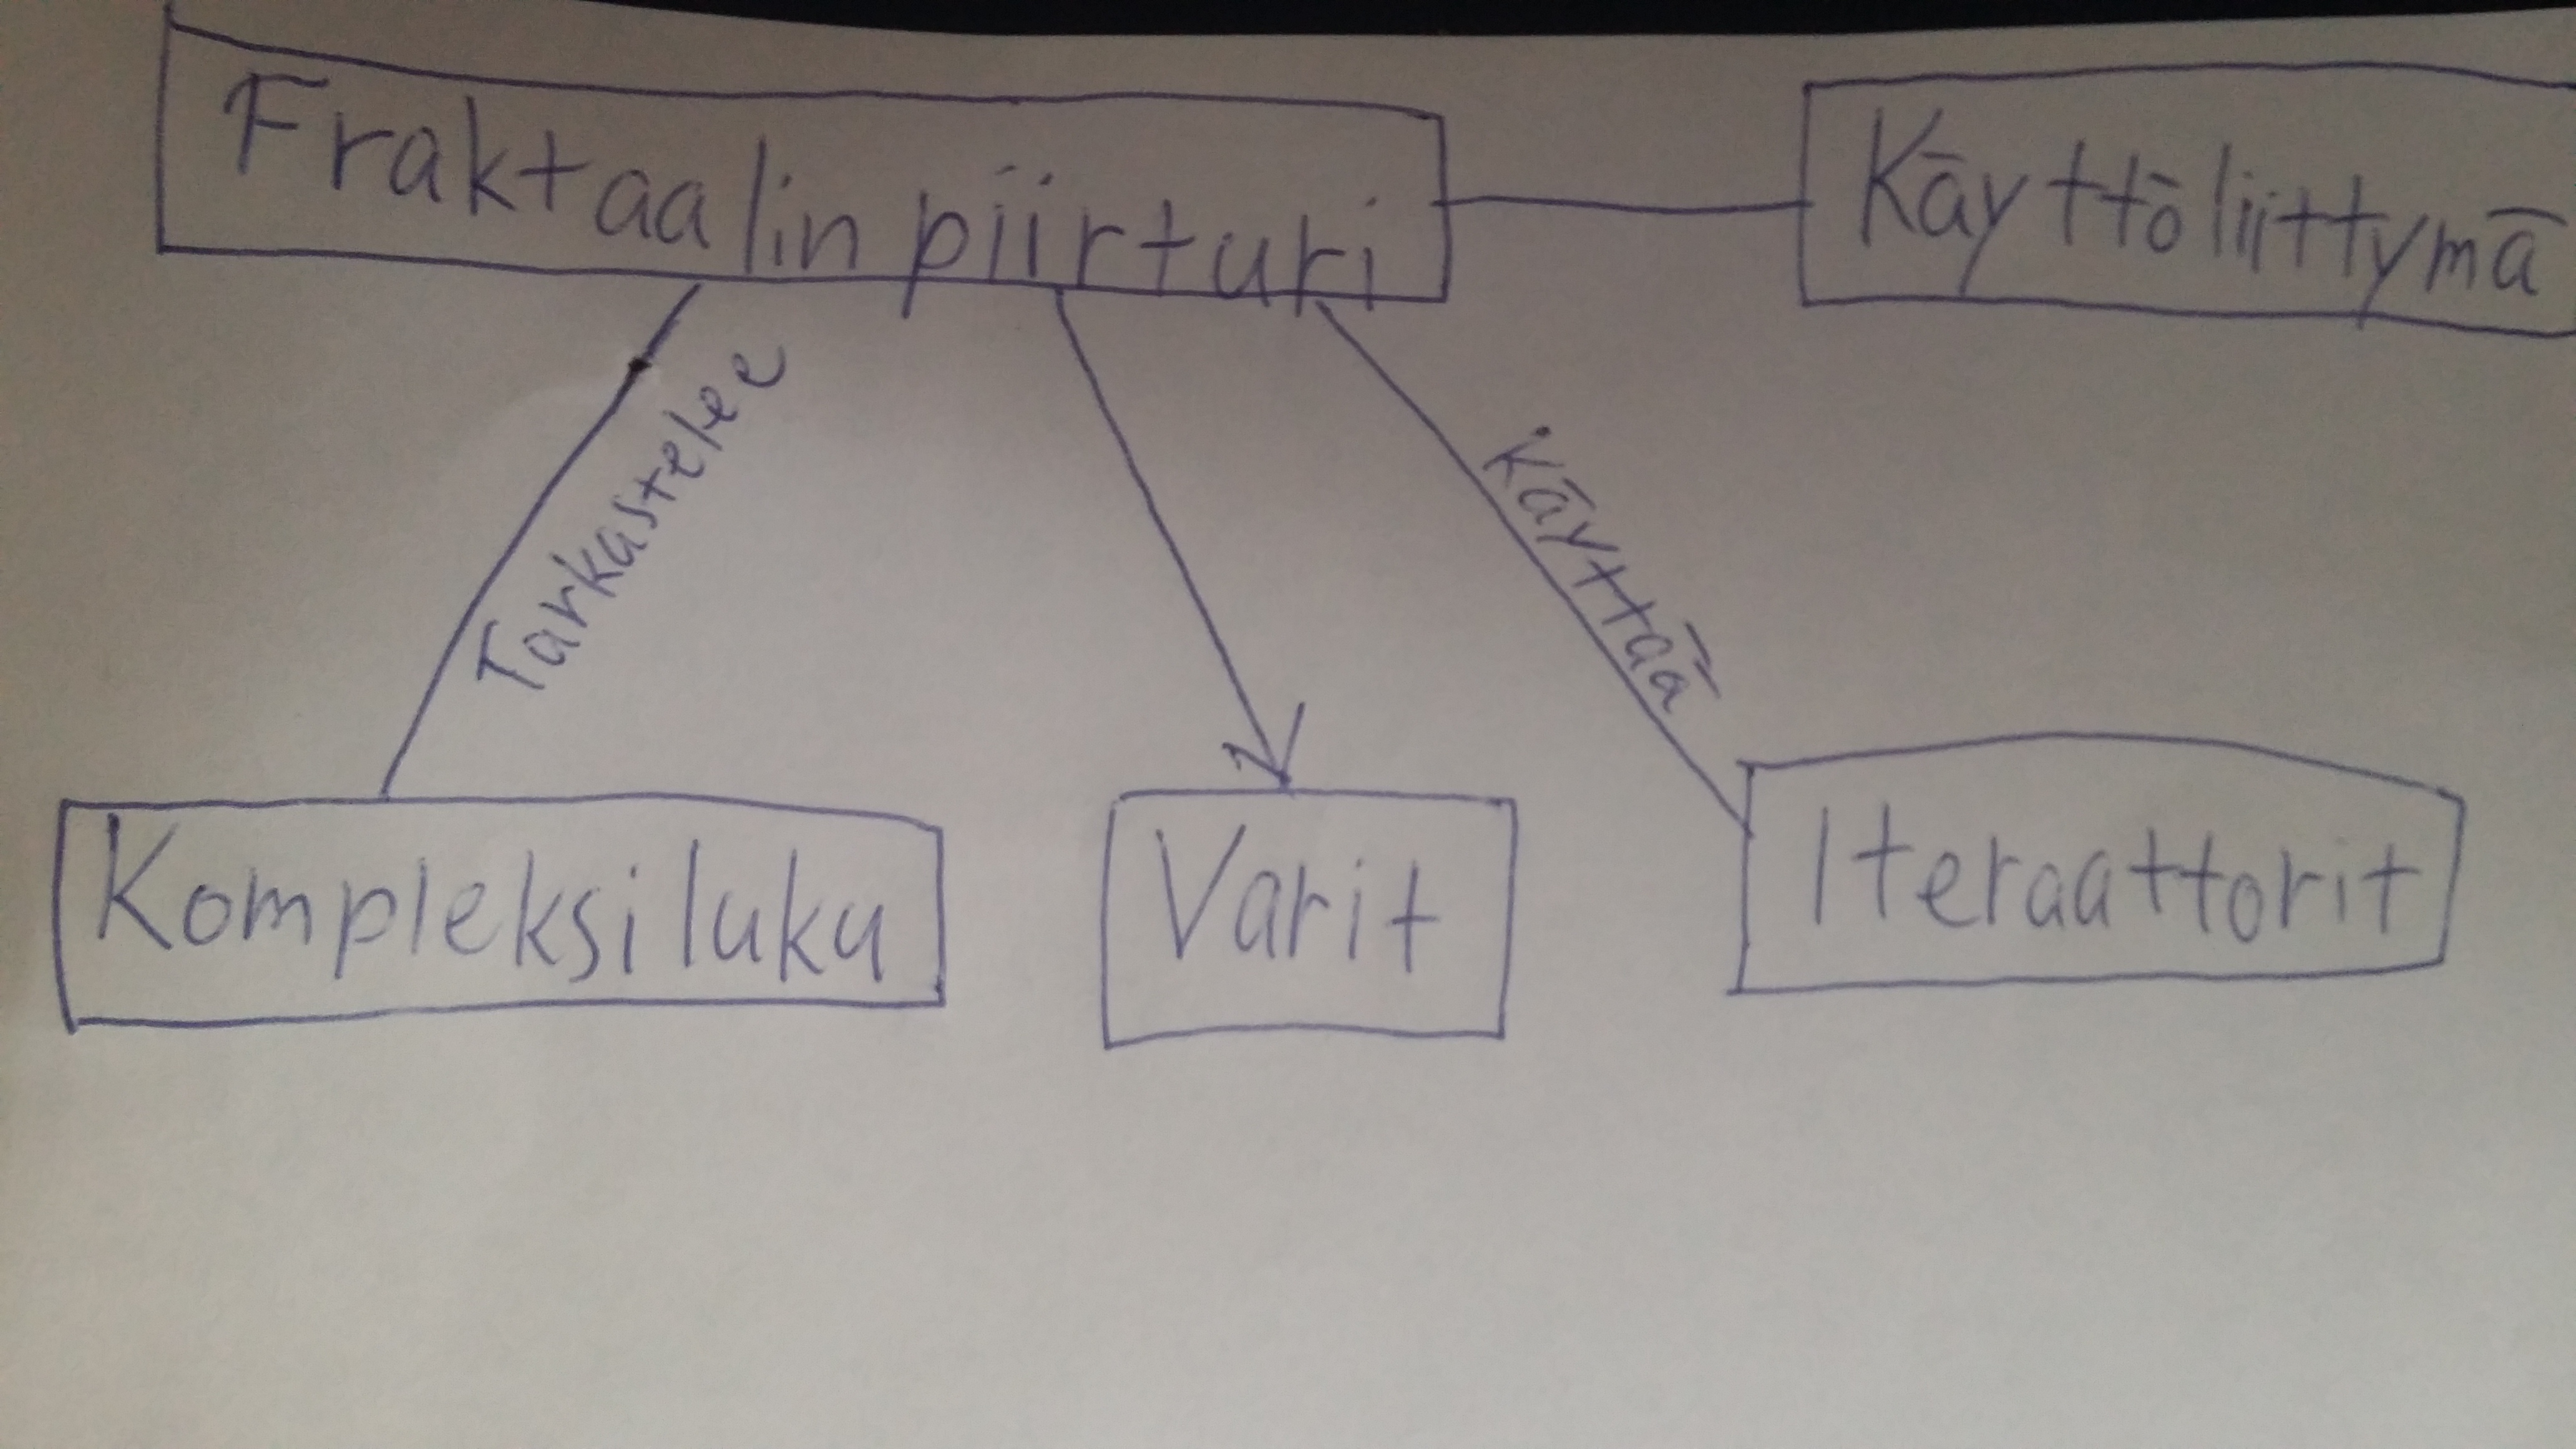 Fraktaalin piirturi
Käyttöliittymä
Tarkastelee
Käyttää
Kompleksiluku
Varit
Iteraattorit